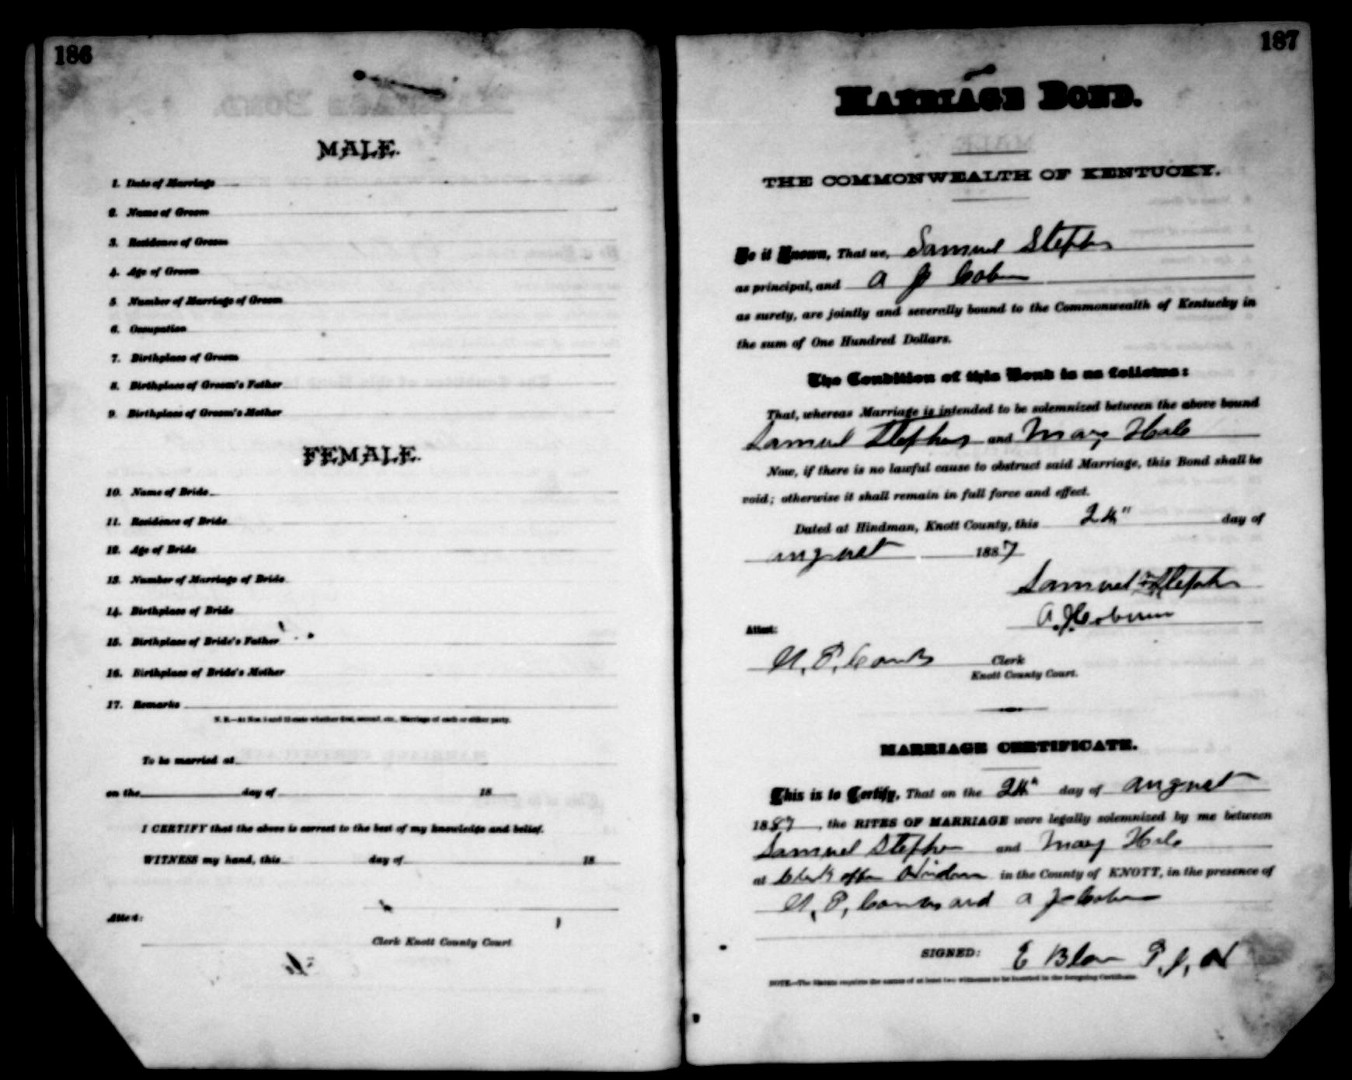 186
MALE.
1. Date of Marriage
2. Name of Groom
3. Residence of Groom
4. Age of Groom
5 Number of Marriage of Groom
6. Occupation
7. Birthplace of Groom
8. Birthplace of Groom's Father
9. Birthplace of Groom's Mother
FEMALE.
10. Name of Bride
11. Residence of Bride
12. Age of Bride
13. Number of Marriage of Bride
14. Birthplace of Bride
15. Birthplace of Bride's Father
16. Birthplace of Bride's Mother
17. Remarks
N. B.—At Nos. 5 and 13 state whether first, second, etc., Marriage of each or either party.
To be married at
on the day of 18
I CERTIFY that the above is correct to the best of my knowledge and belief.
WITNESS my hand, this day of 18
Attest:
Clerk Knott County Court.
187
MARRIAGE BOND.
THE COMMONWEALTH OF KENTUCKY.
Be it Known, That we, Samuel Stephens
as principal, and A J Coburn
as surety, are jointly and severally bound to the Commonwealth of Kentucky in
the sum of One Hundred Dollars.
The Condition of this Bond is as follows:
That, whereas Marriage is intended to be solemnized between the above bound
Samuel Stephens and Mary Hale
Now, if there is no lawful cause to obstruct said Marriage, this Bond shall be
void; otherwise it shall remain in full force and effect.
Dated at Hindman, Knott County, this 24" day of
august 1887
Samuel Stephens
A. J. Coburn
Attest:
P. Combs Clerk
Knott County Court.
MARRIAGE CERTIFICATE.
This is to Certify, That on the 24th day of august
1887, the RITES OF MARRIAGE were legally solemnized by me between
Samuel Stephens and Mary Hale
at Clerks office Hindman in the County of KNOTT, in the presence of
P. Combs and A J Coburn
SIGNED: E P. J,
NOTE.—The Statute requires the names of at least two witnesses to be inserted in the foregoing Certificate.